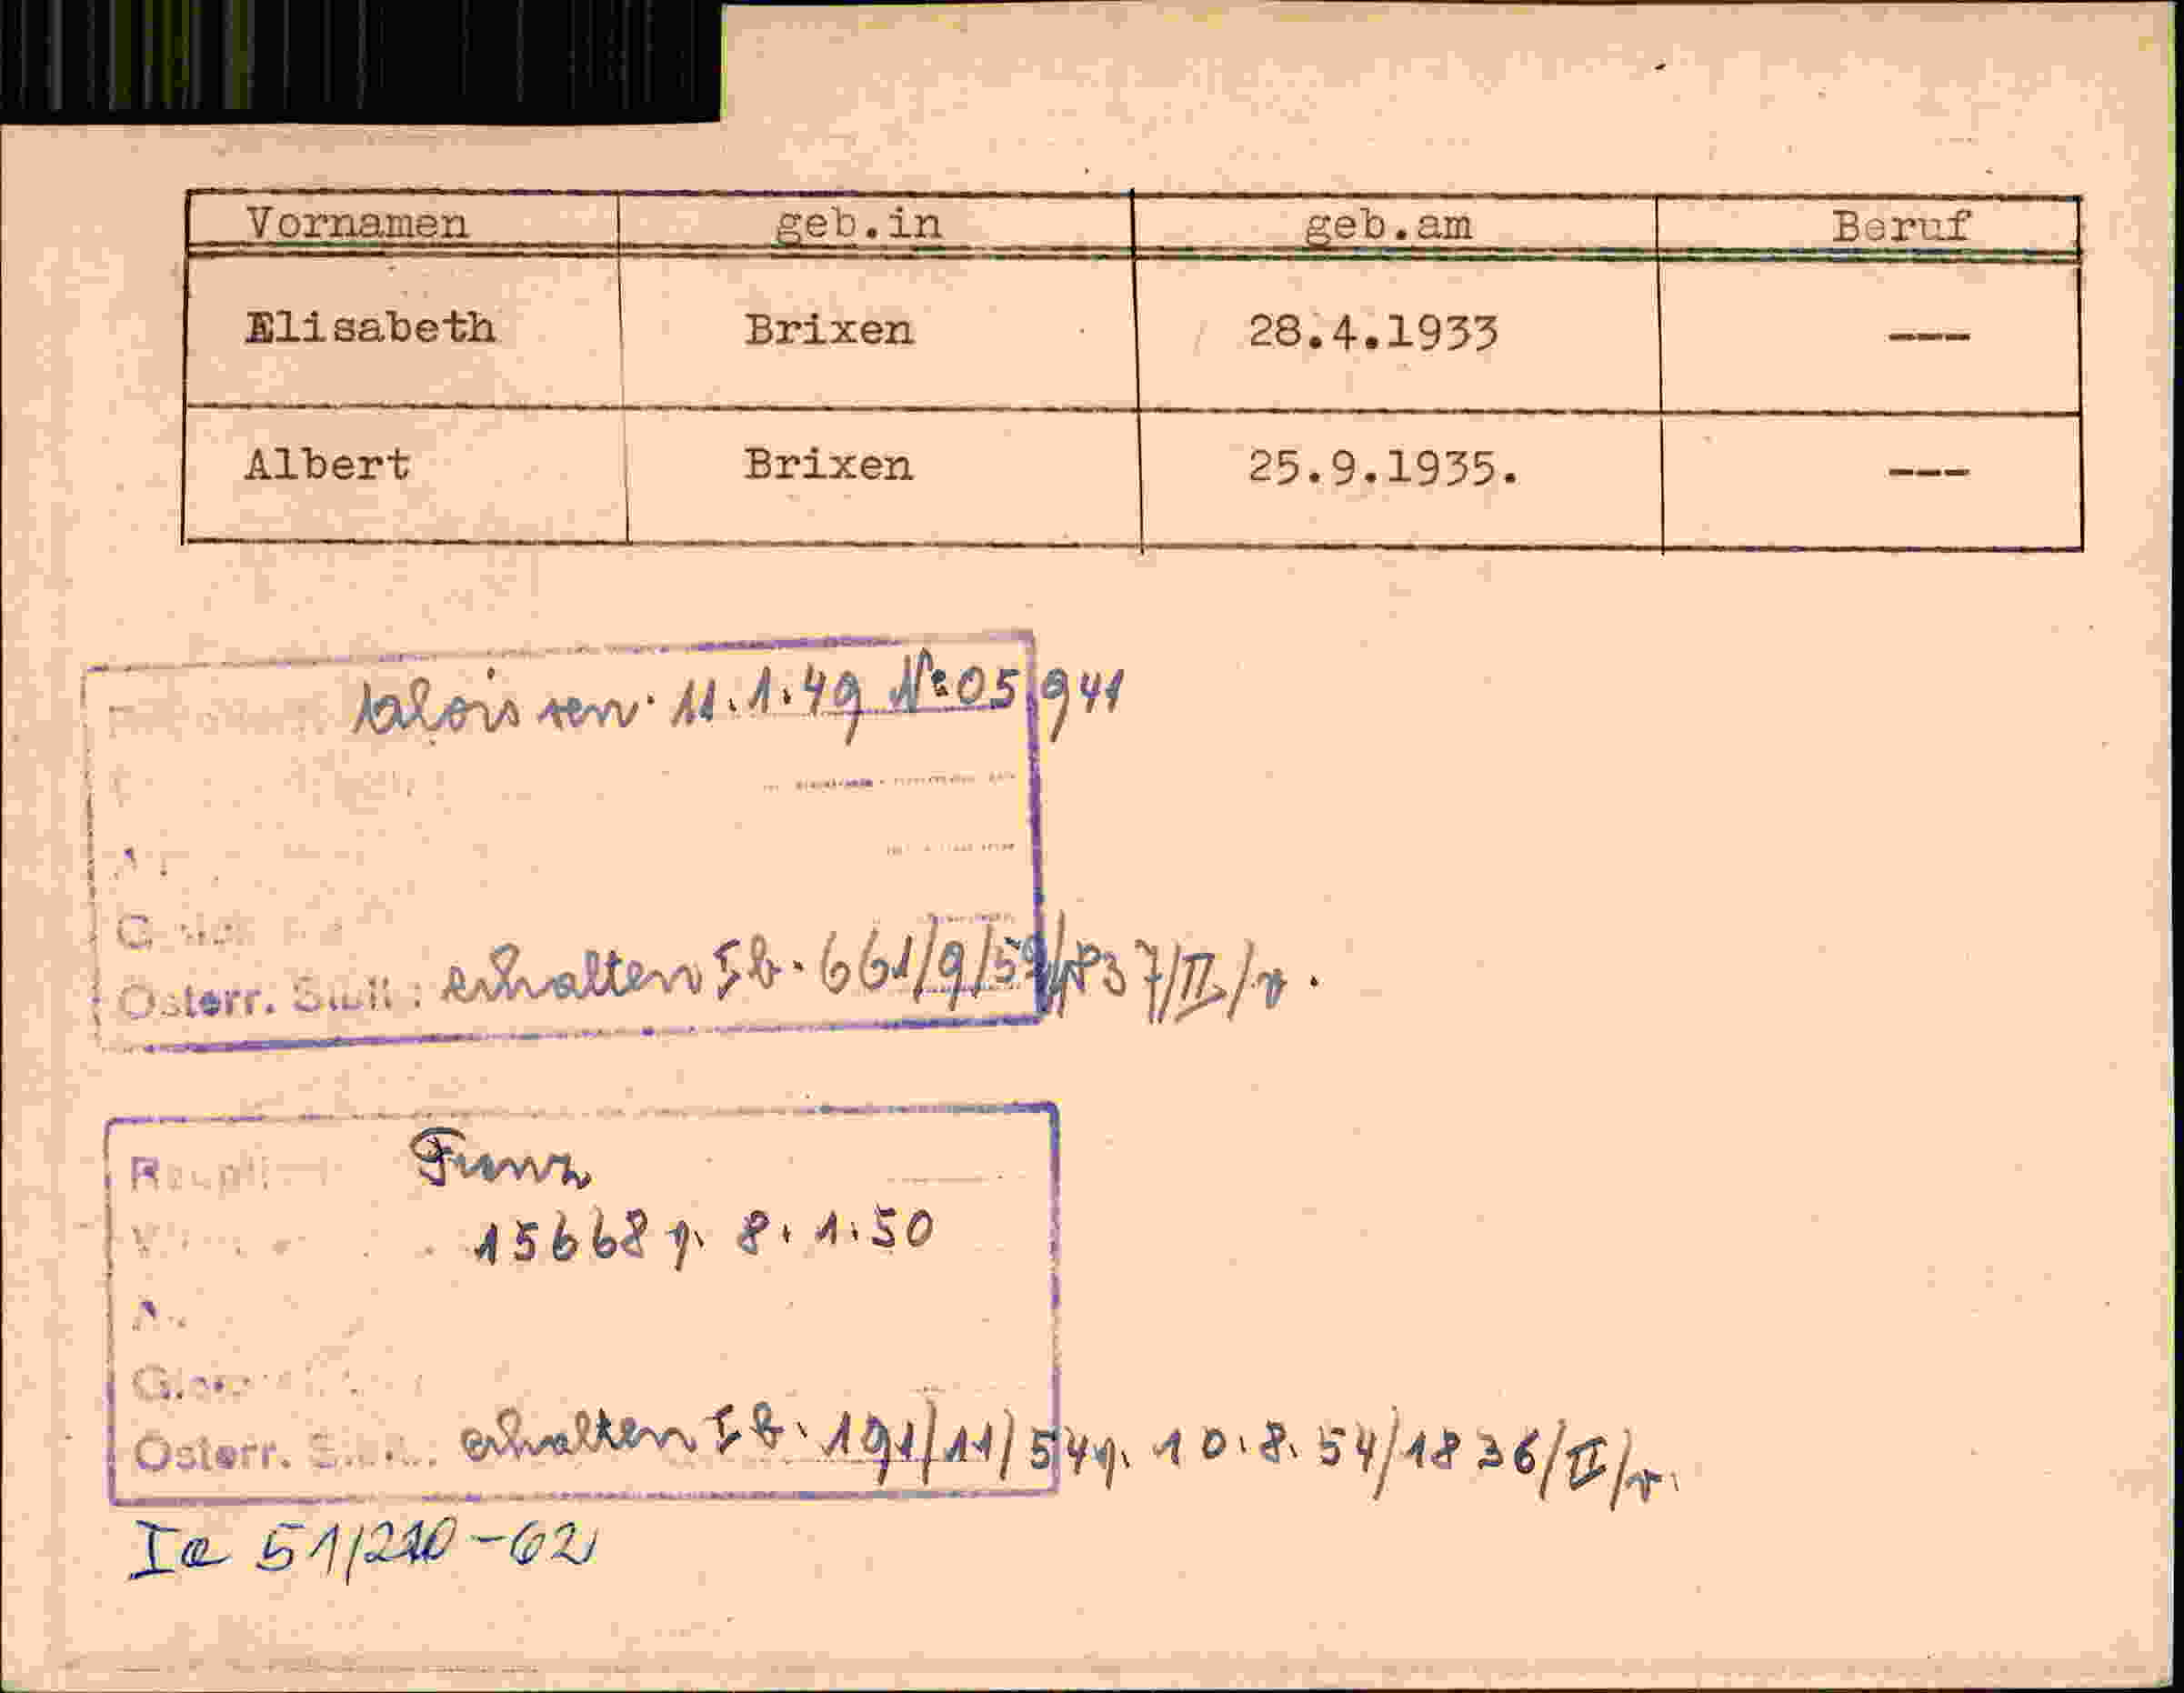 Vornamen geb.in geb.am Beruf
Elisabeth Brixen 28.4.1933 ---
Albert Brixen 25.9.1935. ---
Alois sen. 11.1.49 No 05941
Österr. erhalten 661/9/54/1837/II/r.
Franz
15668 v. 8.1.50
Österr. erhalten 191/11/54 v. 10.8.54/1836/II/r.
Ia 51/210-62